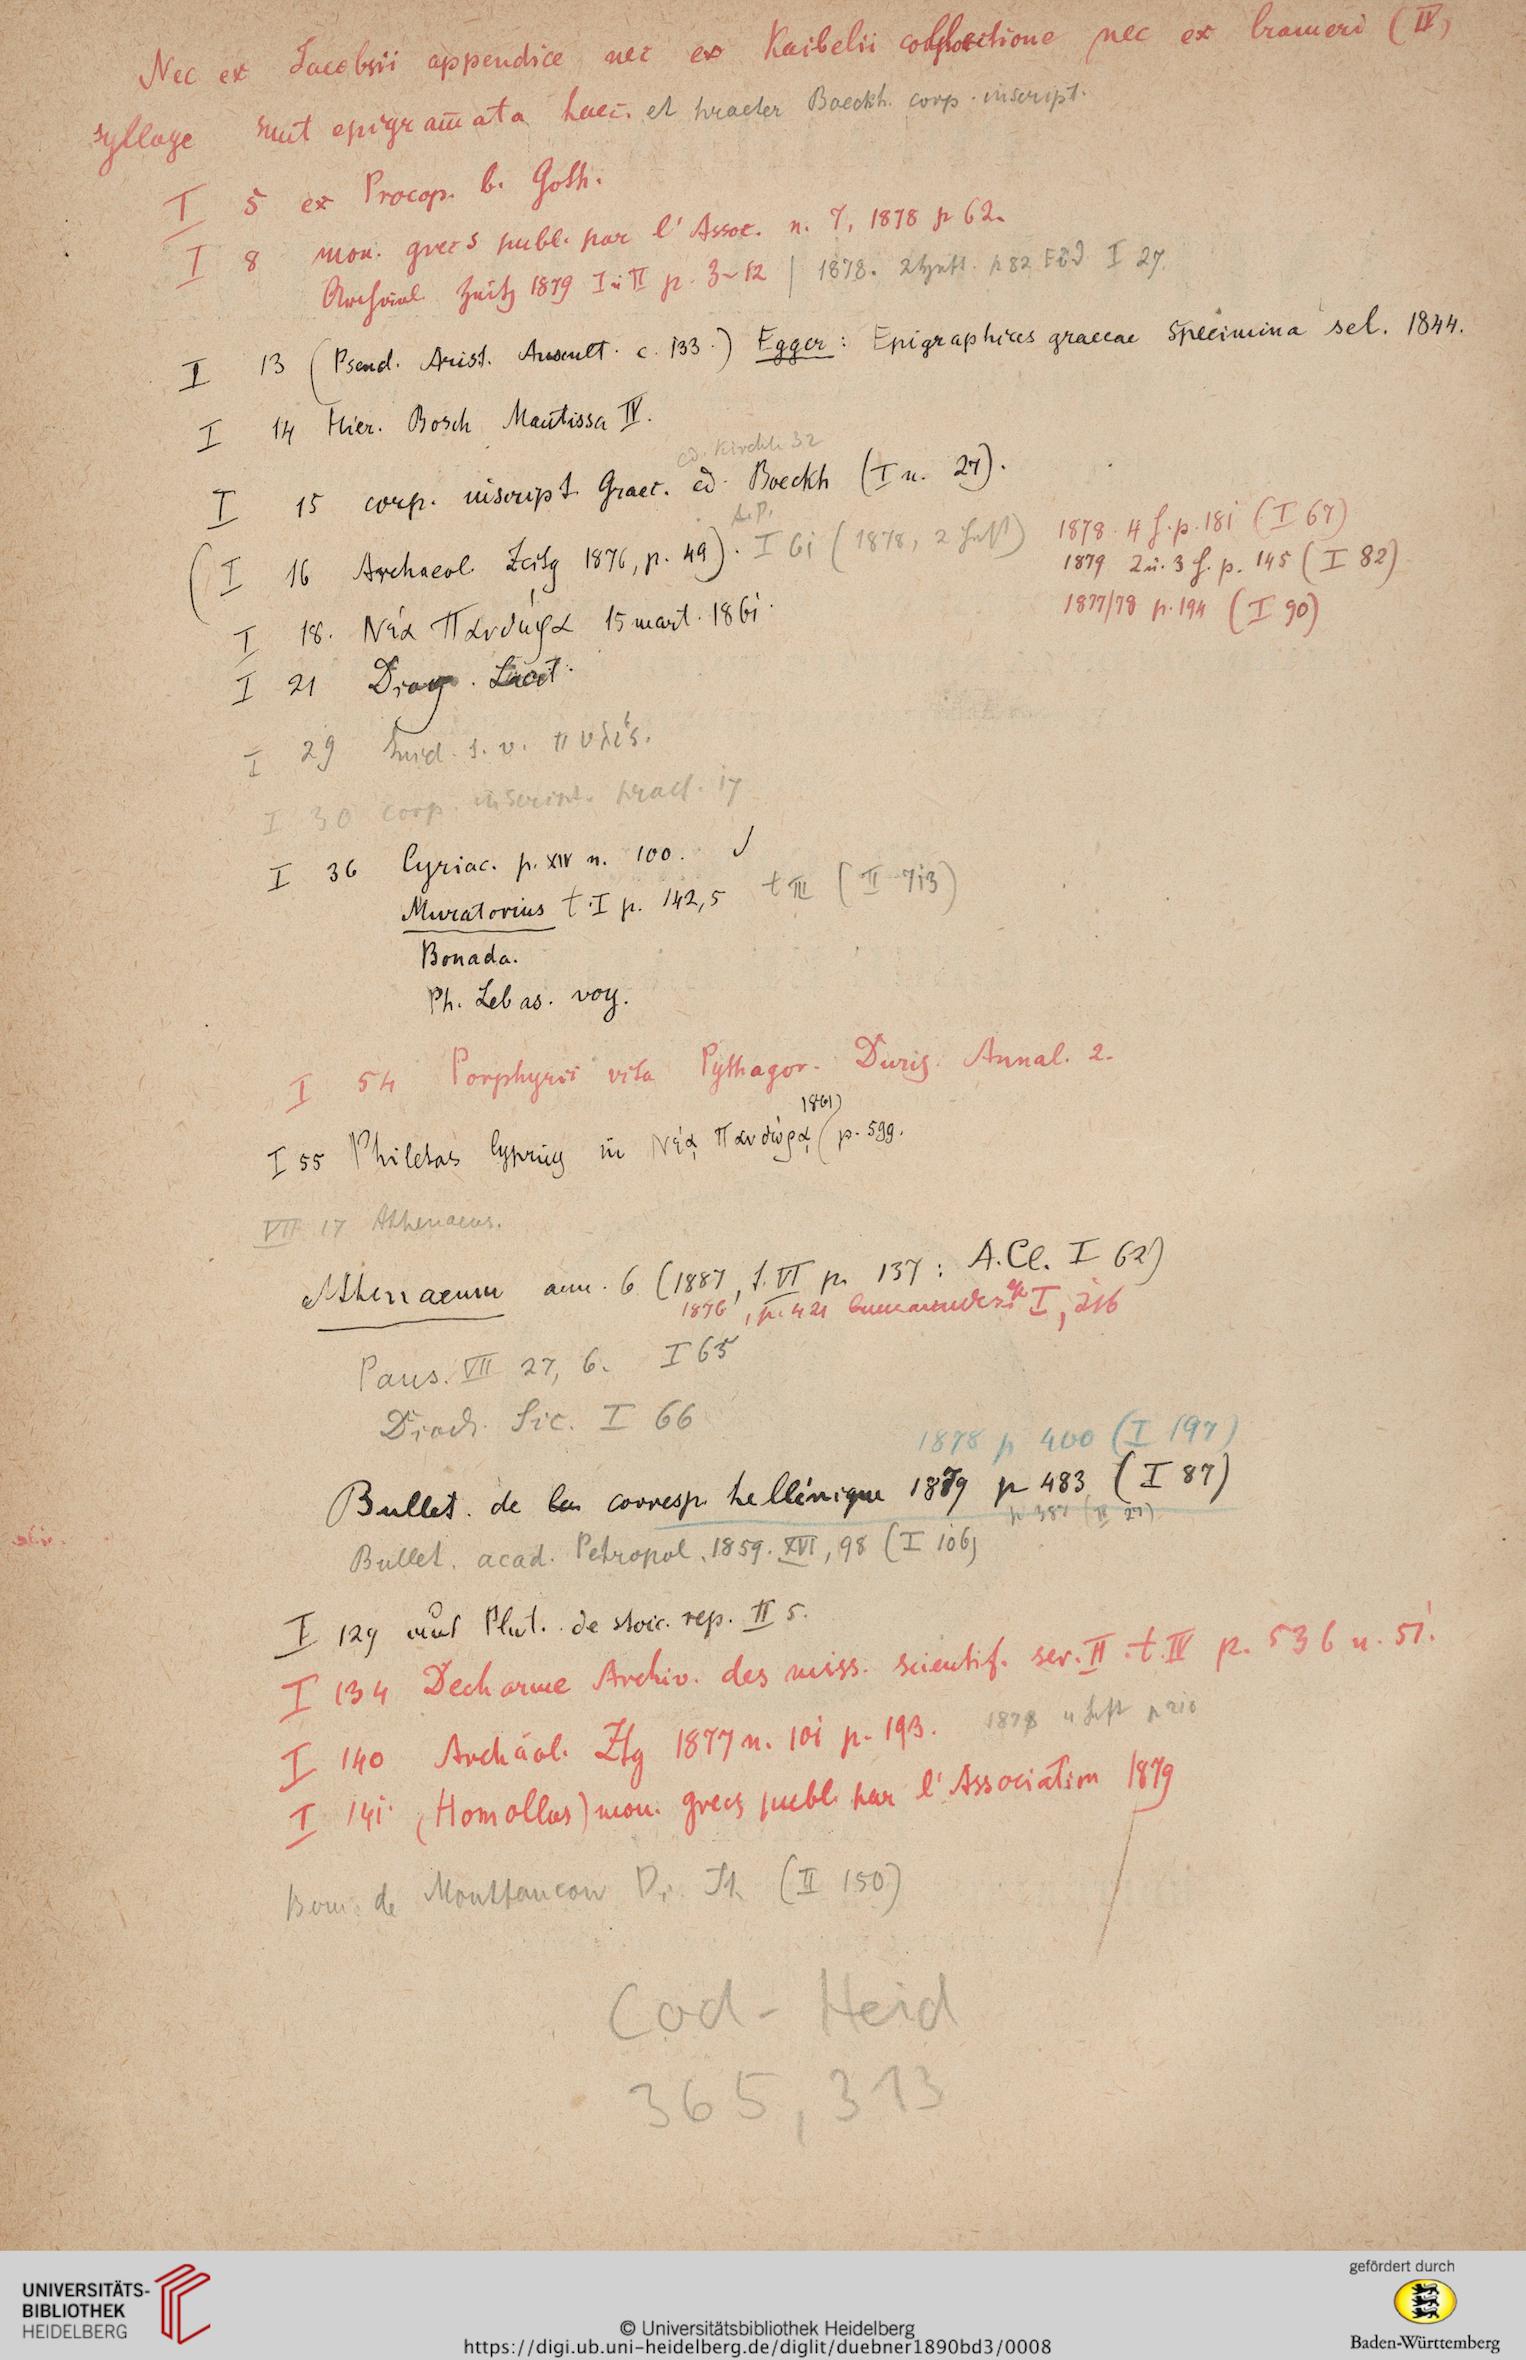 Nec ex Jacobsii appendice nec ex Kaibelii collectione nec ex Crameri (IV)
sylloge sunt epigram̄ata haec. et praeter Boeckh. corp. inscript.
I 5 ex Procop. b. Goth.
I 8 mon. grecs publ. par l'Assoc. n. 7, 1878 p 62.
Archäol. Zeitg 1879 I u II p. 3-12 | 1878. 2 Heft. p 82 I 27.
I 13 (Pseud. Arist. Auscult. c. 133.) Egger: Epigraphices graecae specimina sel. 1844.
I 14 Hier. Bosch Mantissa IV.
ed. Kirchh. 32
I 15 corp. inscript. Graec. ed. Boeckh (I n. 27).
A.P.
(I 16 Archaeol. Zeitg 1876, p. 49). I 61 (1878, 2 Heft) 1878. 4 H. p. 181 (I 67)
1879 2 u. 3 H. p. 145 (I 82)
I 18. Νέα Πανδώρα 15 mart. 1861. 1877/78 p. 194 (I 90)
I 21 Diog. Laert.
I 29 Suid. s. v.
I 30 corp. inscript. praef. 17
I 36 Cyriac. p. XIV n. 100.
Muratorius t. I p. 142,5 t III (II 713)
Bonada.
Ph. Lebas. voy.
I 54 Porphyrii vita Pythagor. Duris. Annal. 2.
1861)
I 55 Philetas Cyprius in Νέᾳ Πανδώρᾳ (p. 599.
VII 17 Athenaeus.
Athenaeum ann. 6 (1887, t. VI p. 137: A.Cl. I 62)
1876, p. 421 I, 216
Paus. VII 27, 6. I 65
Diod. Sic. I 66
1878 p 400 (I 197)
Bullet. de la corresp. hellénique 1879 p 483 (I 87)
p 387 (II 27)
Bullet. acad. Petropol. 1859. XVI, 98 (I 106)
I 129 aus Plut. de stoic. rep. II 5.
I 134 Decharme Archiv. des miss. scientif. ser. II. t. IV p. 536 n. 51.
I 140 Archäol. Ztg 1877 n. 101 p. 193. 1878 4 Heft p 210
I 141. (Homollus) mon. grecs publ. par l'Association 1879
Bern. de Montfaucon D. It. (II 150)
Cod- Heid
365, 313
UNIVERSITÄTS-
BIBLIOTHEK
HEIDELBERG
© Universitätsbibliothek Heidelberg
https://digi.ub.uni-heidelberg.de/diglit/duebner1890bd3/0008
gefördert durch
Baden-Württemberg